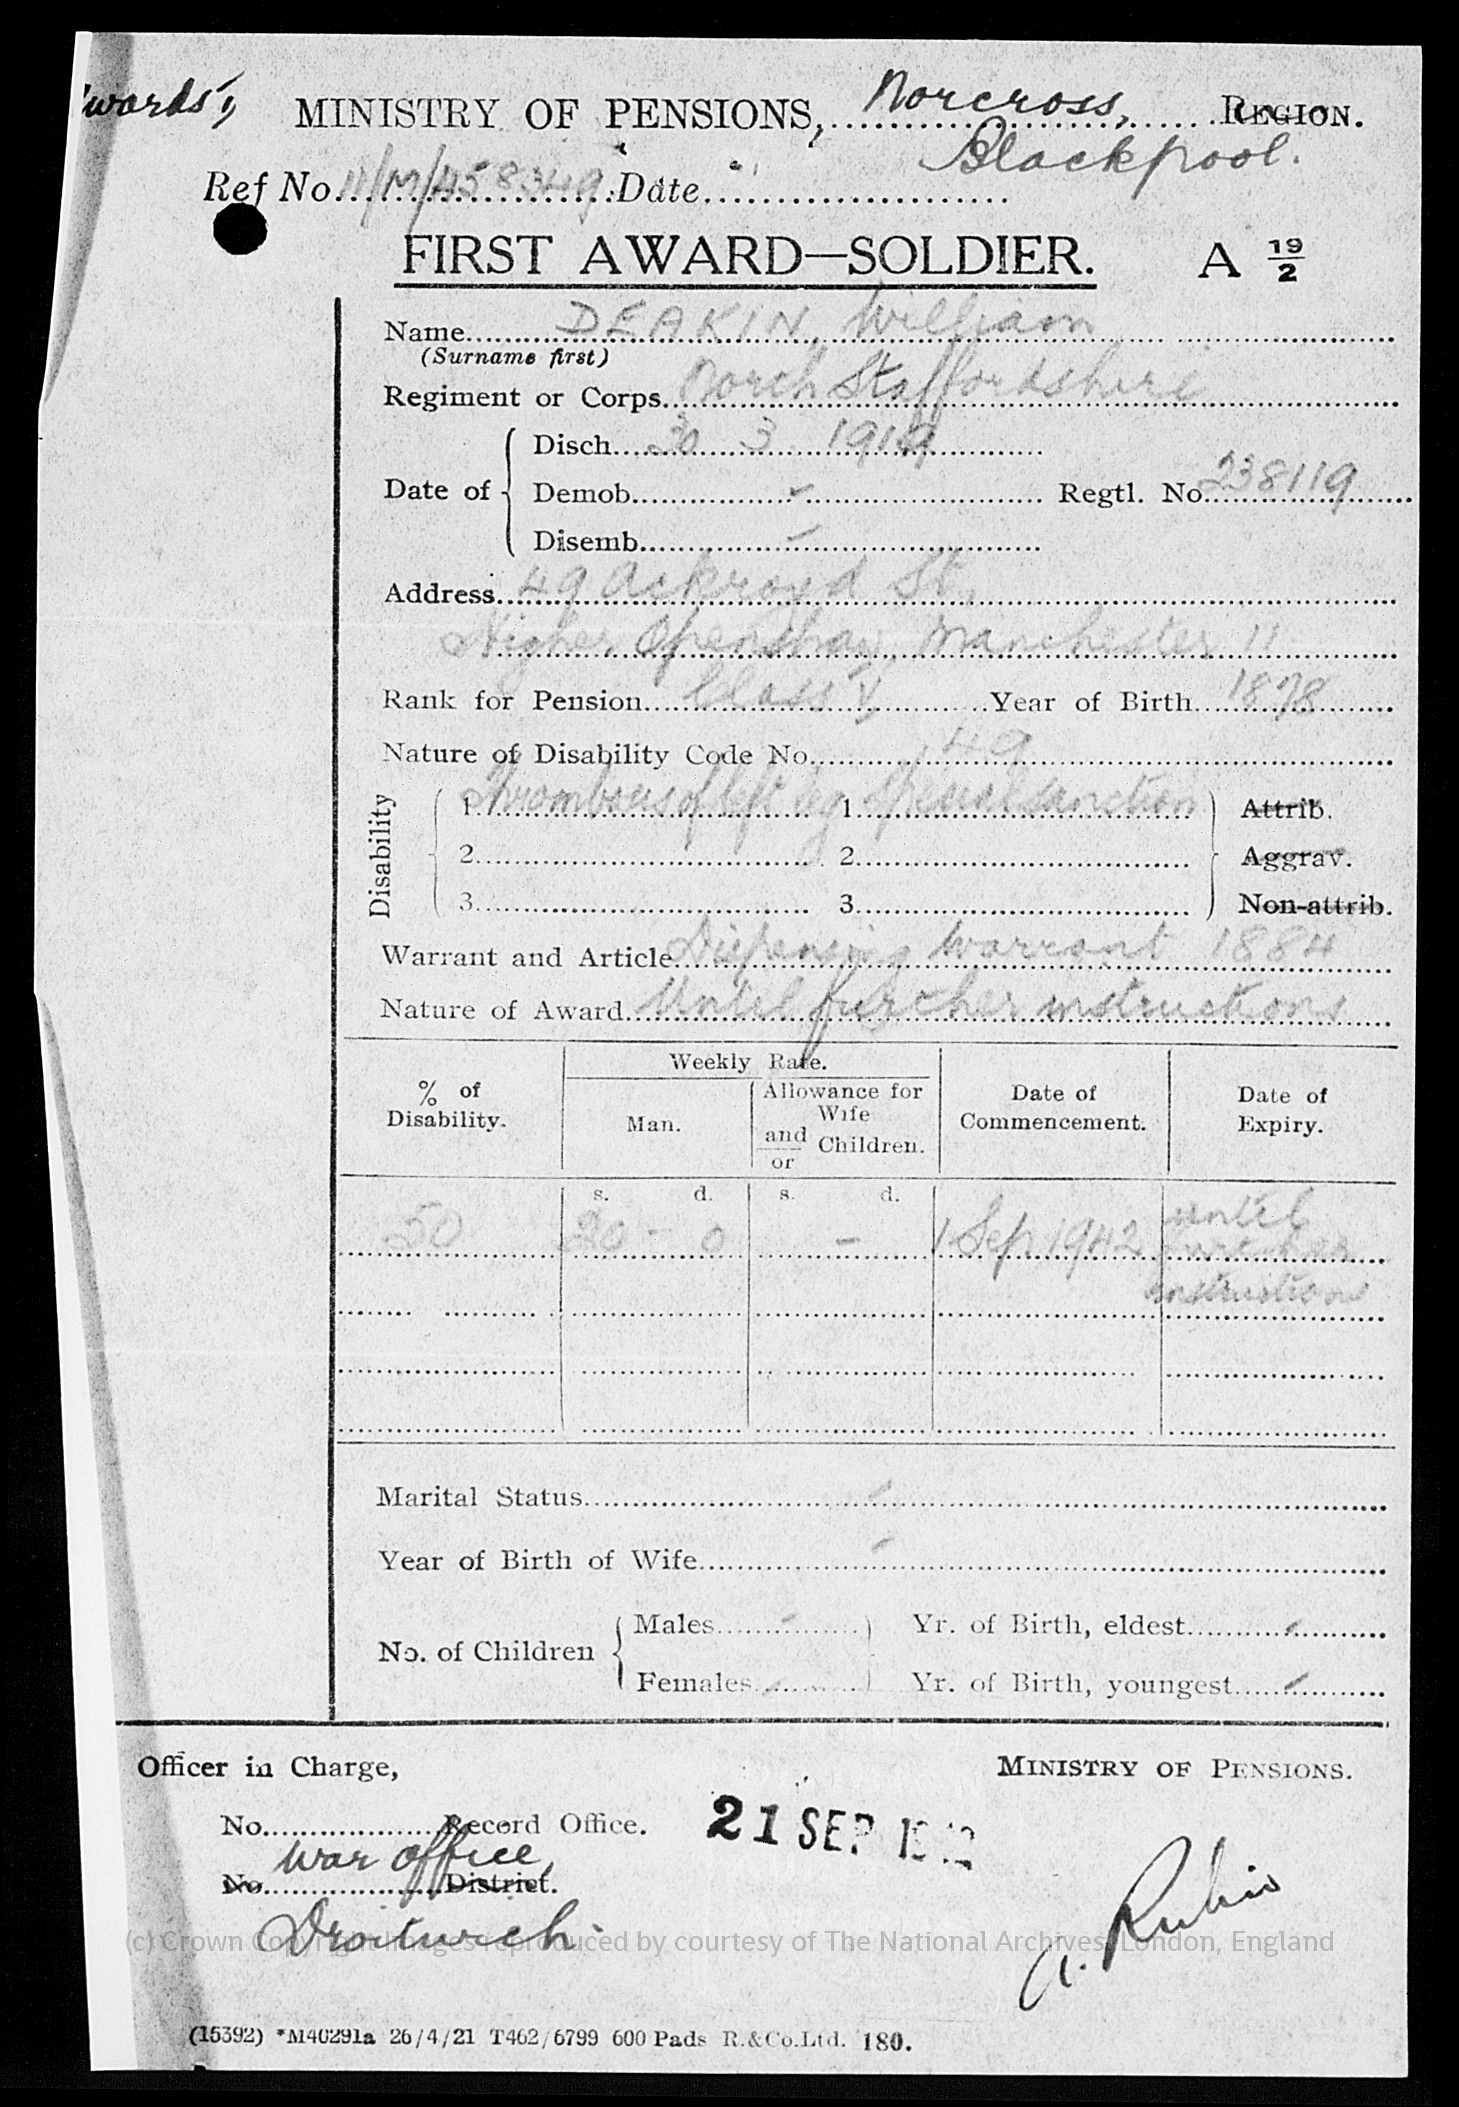 wards V MINISTRY OF PENSIONS, Norcross, REGION.
Blackpool.
Ref No. 11/M/458349 Date
FIRST AWARD—SOLDIER. A 19/2
Name DEAKIN, William
(Surname first)
Regiment or Corps North Staffordshire
Date of
Disch. 30 3 1919
Demob. - Regtl. No 238119
Disemb. -
Address 49 Ackroyd St,
Higher Openshaw, Manchester 11
Rank for Pension Class V Year of Birth 1878
Nature of Disability Code No. 49
Disability
1. Thrombosis of left leg 1. Special sanction Attrib.
2. 2. Aggrav.
3. 3. Non-attrib.
Warrant and Article Dispensing Warrant 1884
Nature of Award Until further instructions
Weekly Rate.
% of Disability. Man. Allowance for Wife and/or Children. Date of Commencement. Date of Expiry.
s. d. s. d.
50 20 - 0 - 1 Sep 1942 until
further
instructions
Marital Status -
Year of Birth of Wife -
No. of Children
Males - Yr. of Birth, eldest -
Females - Yr. of Birth, youngest -
Officer in Charge, MINISTRY OF PENSIONS.
No. Record Office. 21 SEP 1942
War Office,
No. District.
Droitwich. A. Rubio
(c) Crown Copyright Images reproduced by courtesy of The National Archives, London, England
(15392) *M40291a 26/4/21 T462/6799 600 Pads R.&Co.Ltd. 180.